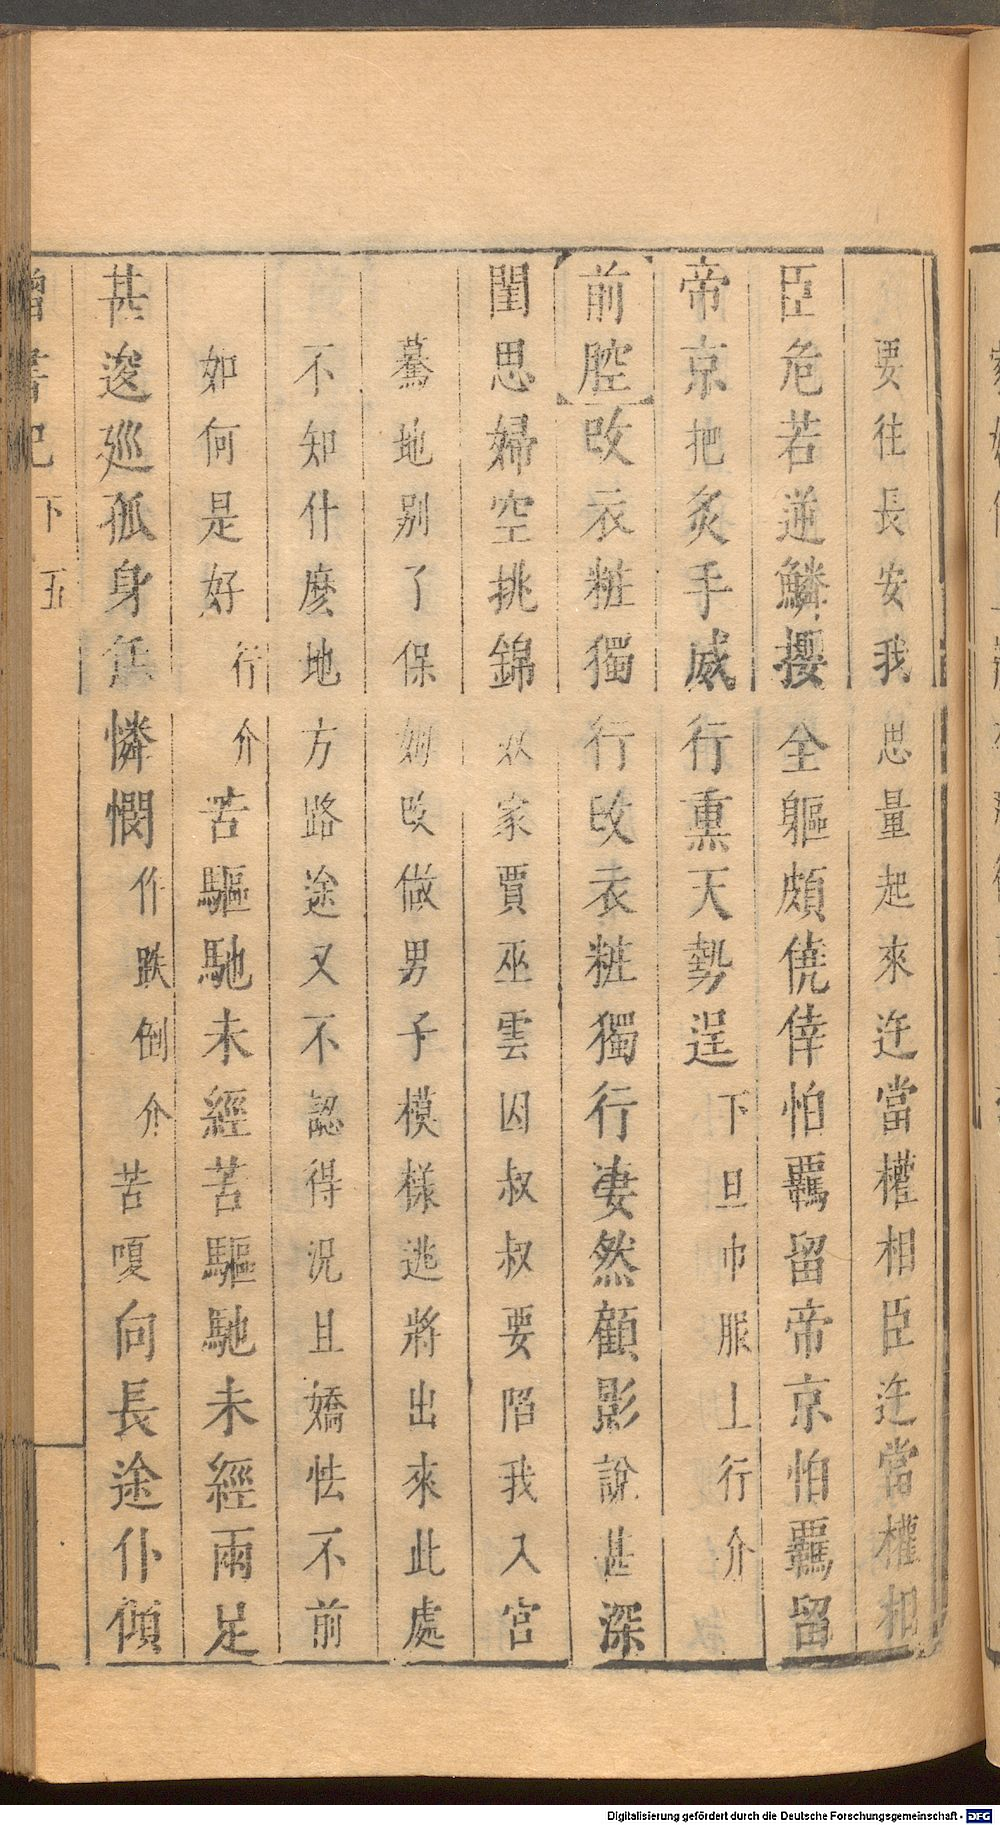 要往長安我思量起來迕當權相臣迕當權相
臣危若逆鱗攖全軀頗僥倖怕羈留帝京怕羈留
帝京把炙手威行熏天勢逞下旦巾服上行介
前腔改衣粧獨行改衣粧獨行凄然顧影說甚深
閨思婦空挑錦奴家賈巫雲因叔叔要陷我入宮
驀地别了保姆改做男子模樣逃將出來此處
不知什麽地方路途又不認得况且嬌怯不前
如何是好行介苦驅馳未經苦驅馳未經兩足
甚逡廵孤身無憐憫作跌倒介苦嗄向長途仆傾
書記 下 五
Digitalisierung gefördert durch die Deutsche Forschungsgemeinschaft - DFG